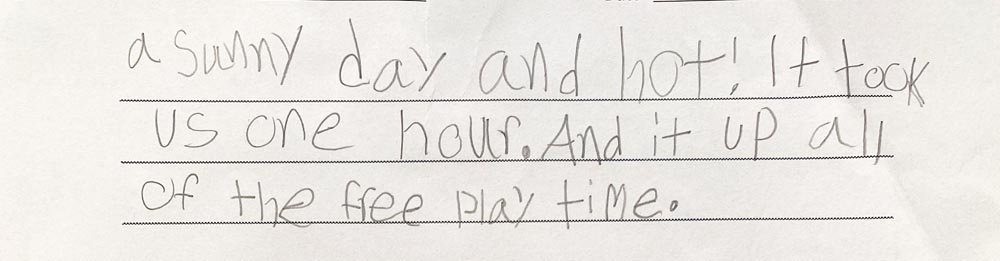 a sunny day and hot! It took
us one hour. And it up all
of the free play time.